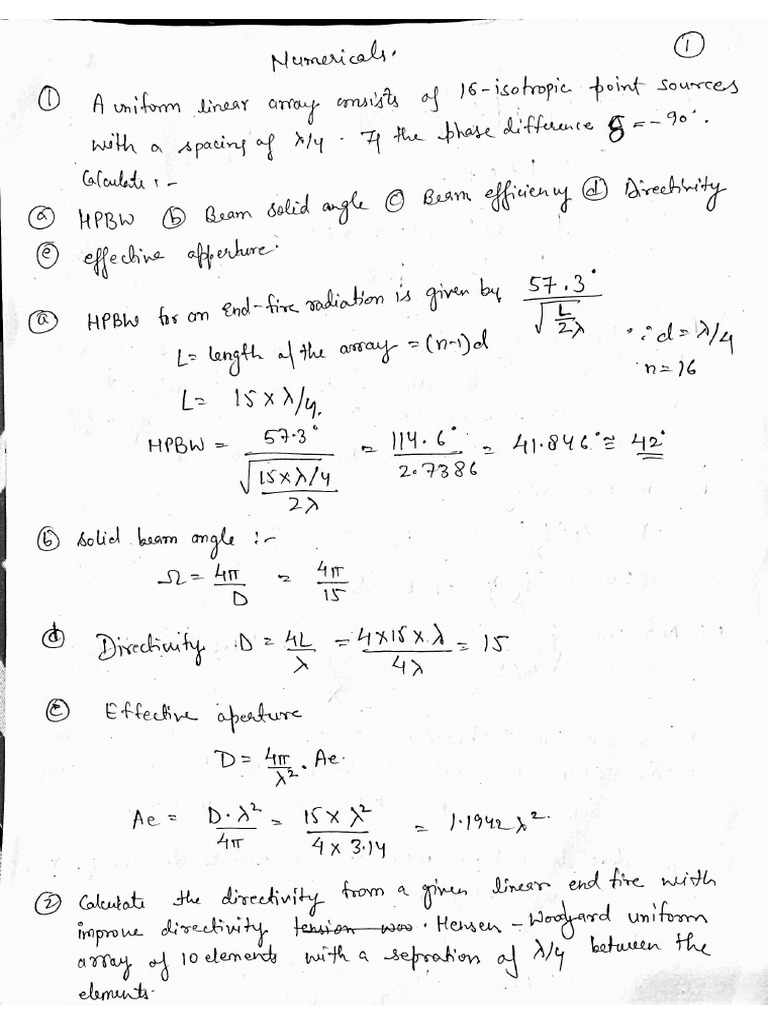 Numericals.
①
① A uniform linear array consists of 16-isotropic point sources
with a spacing of λ/4. If the phase difference δ = -90°.
Calculate :-
ⓐ HPBW ⓑ Beam solid angle ⓒ Beam efficiency ⓓ Directivity
ⓔ effective apperture.
ⓐ HPBW for an End-fire radiation is given by 57.3° / √(L/2λ)
L = length of the array = (n-1)d ∵ d = λ/4
n = 16
L = 15 x λ/4.
HPBW = 57.3° / √(15 x λ/4 / 2λ) = 114.6° / 2.7386 = 41.846° ≅ 42°
ⓑ Solid beam angle :-
Ω = 4π/D = 4π/15
ⓓ Directivity D = 4L/λ = 4 x 15 x λ / 4λ = 15
ⓔ Effective aperture
D = 4π/λ² . Ae.
Ae = D.λ²/4π = 15 x λ² / 4 x 3.14 = 1.1942 λ².
② Calculate the directivity from a given linear end fire with
improve directivity tension was . Hensen - Woodyard uniform
array of 10 elements with a sepration of λ/4 between the
elements.